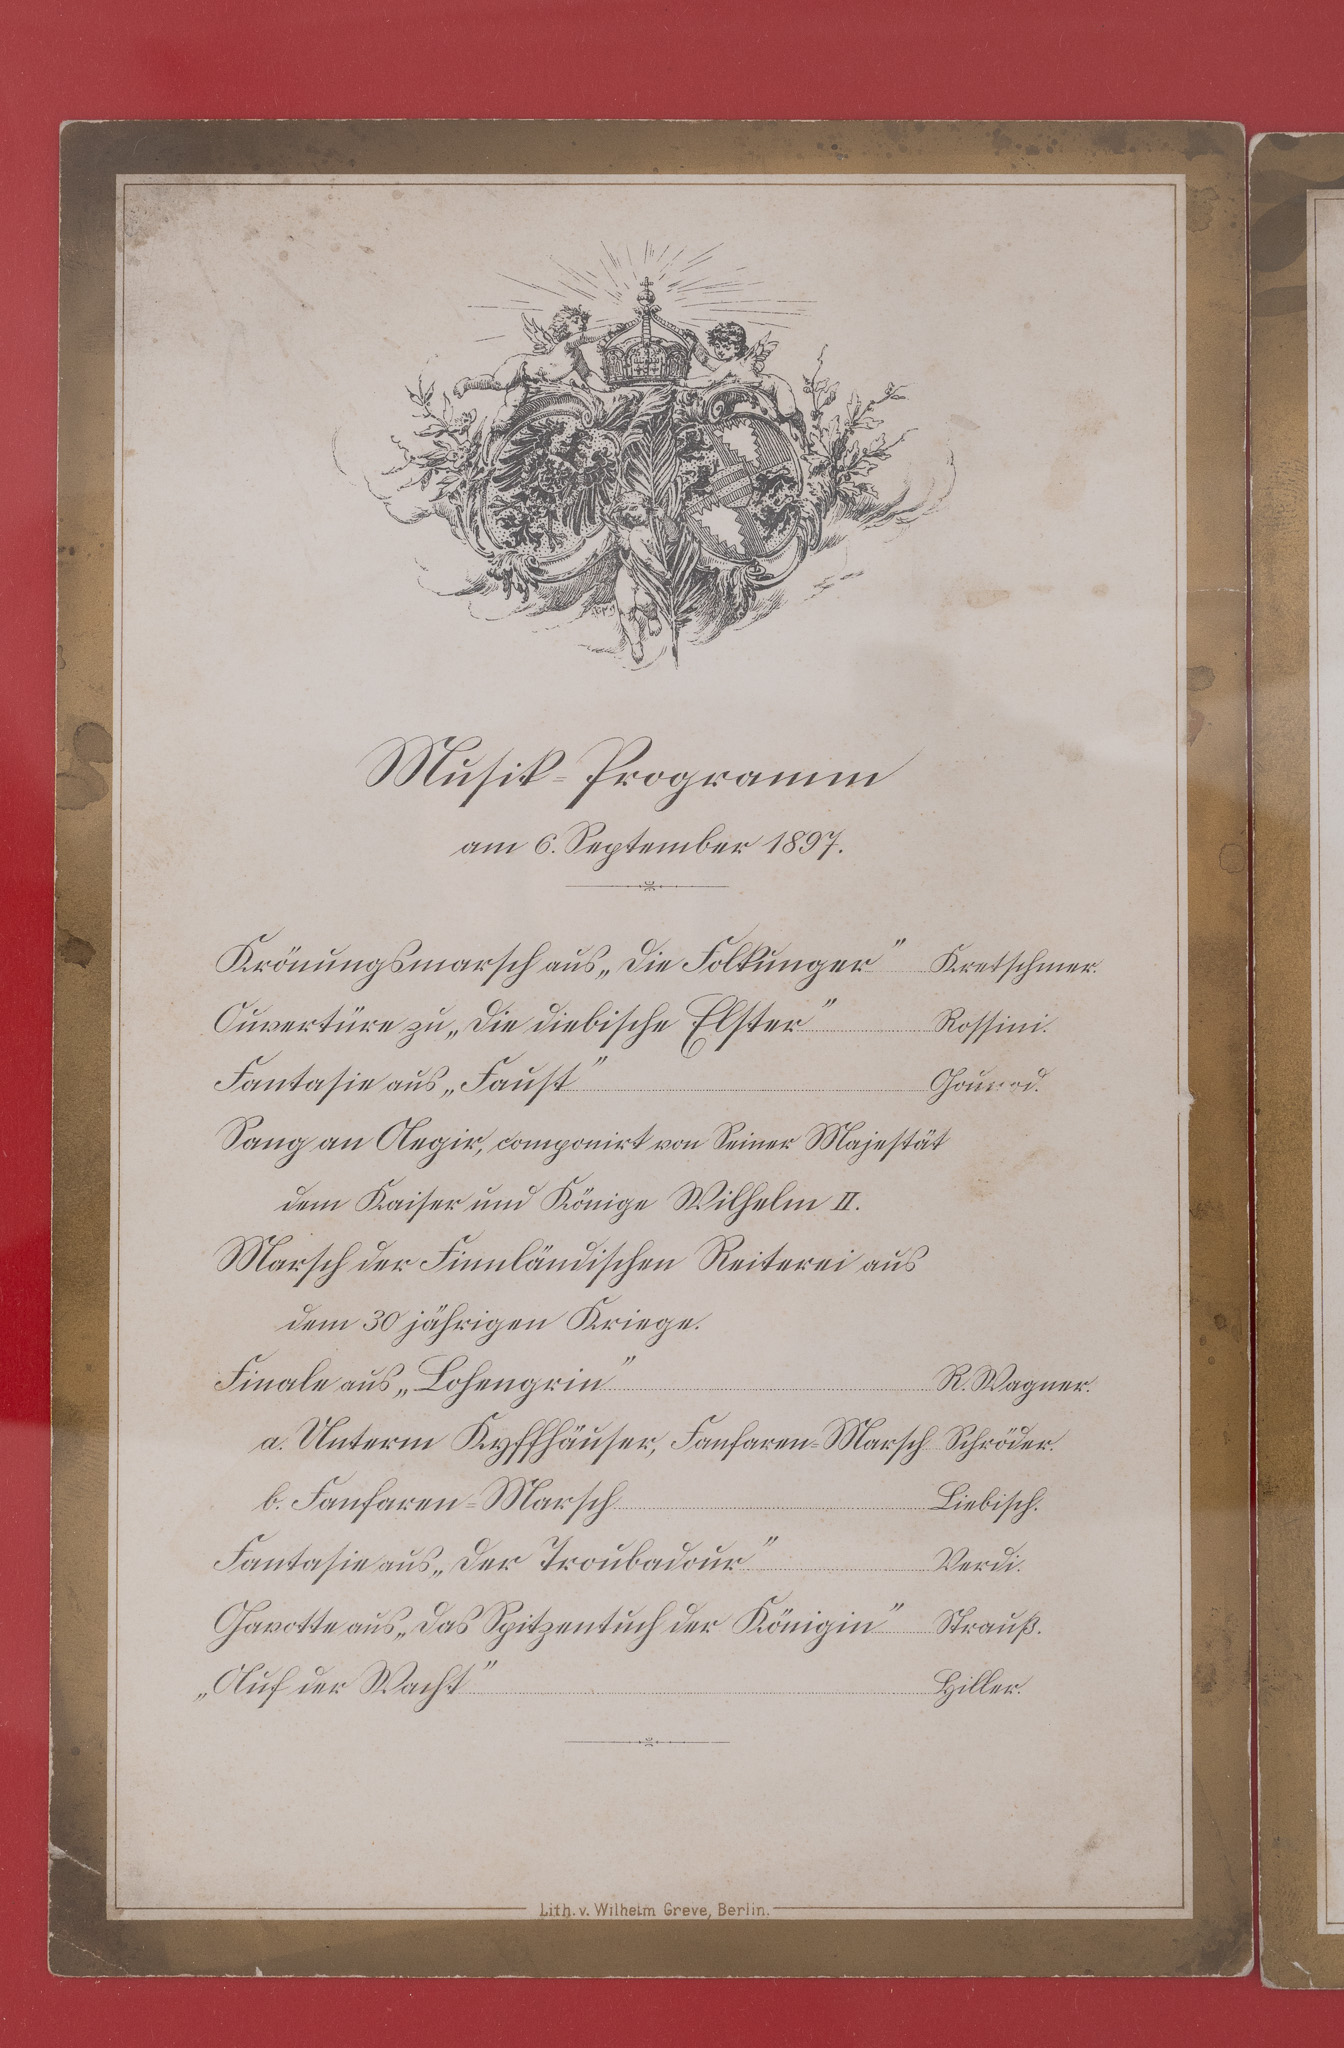 Musik-Programm
am 6. September 1897.
Krönungsmarsch aus „Die Folkunger” Kretschmer.
Ouvertüre zu „Die diebische Elster” Rossini.
Fantasie aus „Faust” Gounod.
Sang an Aegir, componirt von Seiner Majestät
dem Kaiser und Könige Wilhelm II.
Marsch der Finnländischen Reiterei aus
dem 30 jährigen Kriege.
Finale aus „Lohengrin” R. Wagner.
a. Unterm Kyffhäuser, Fanfaren-Marsch Schröder.
b. Fanfaren-Marsch Liebisch.
Fantasie aus „Der Troubadour” Verdi.
Gavotte aus „Das Spitzentuch der Königin” Strauß.
„Auf der Wacht” Hiller.
Lith. v. Wilhelm Greve, Berlin.